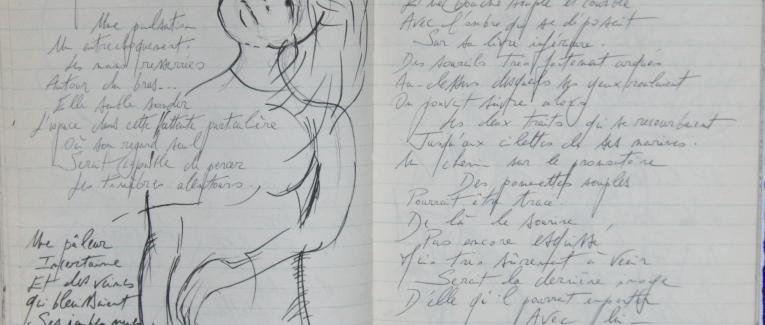 Une pulsation
Un entrechoquement.
Les mains resserrées
Autour du bras...
Elle semble sonder
L'espace dans cette attente particulière
Où son regard seul
Serait capable de percer
Les ténèbres alentours.
Une pâleur
Incertaine
Et des veines
qui bleuissaient
Ses jambes nues
Et sa bouche souple et
Avec l'ombre qui se déposait
Sur sa lèvre inférieure.
Des sourcils très fortement arqués
Au-dessus desquels ses yeux
On pouvait suivre alors
Les deux traits qui se recourbaient
Jusqu'aux ailettes de ses narines.
Un chemin sur le promontoire
Des pommettes souples
Pourrait être tracé.
De là le sourire
Pas encore esquissé,
Mais très sûrement à venir
Serait la dernière image
D'elle qu'il pourrait emporter
Avec lui